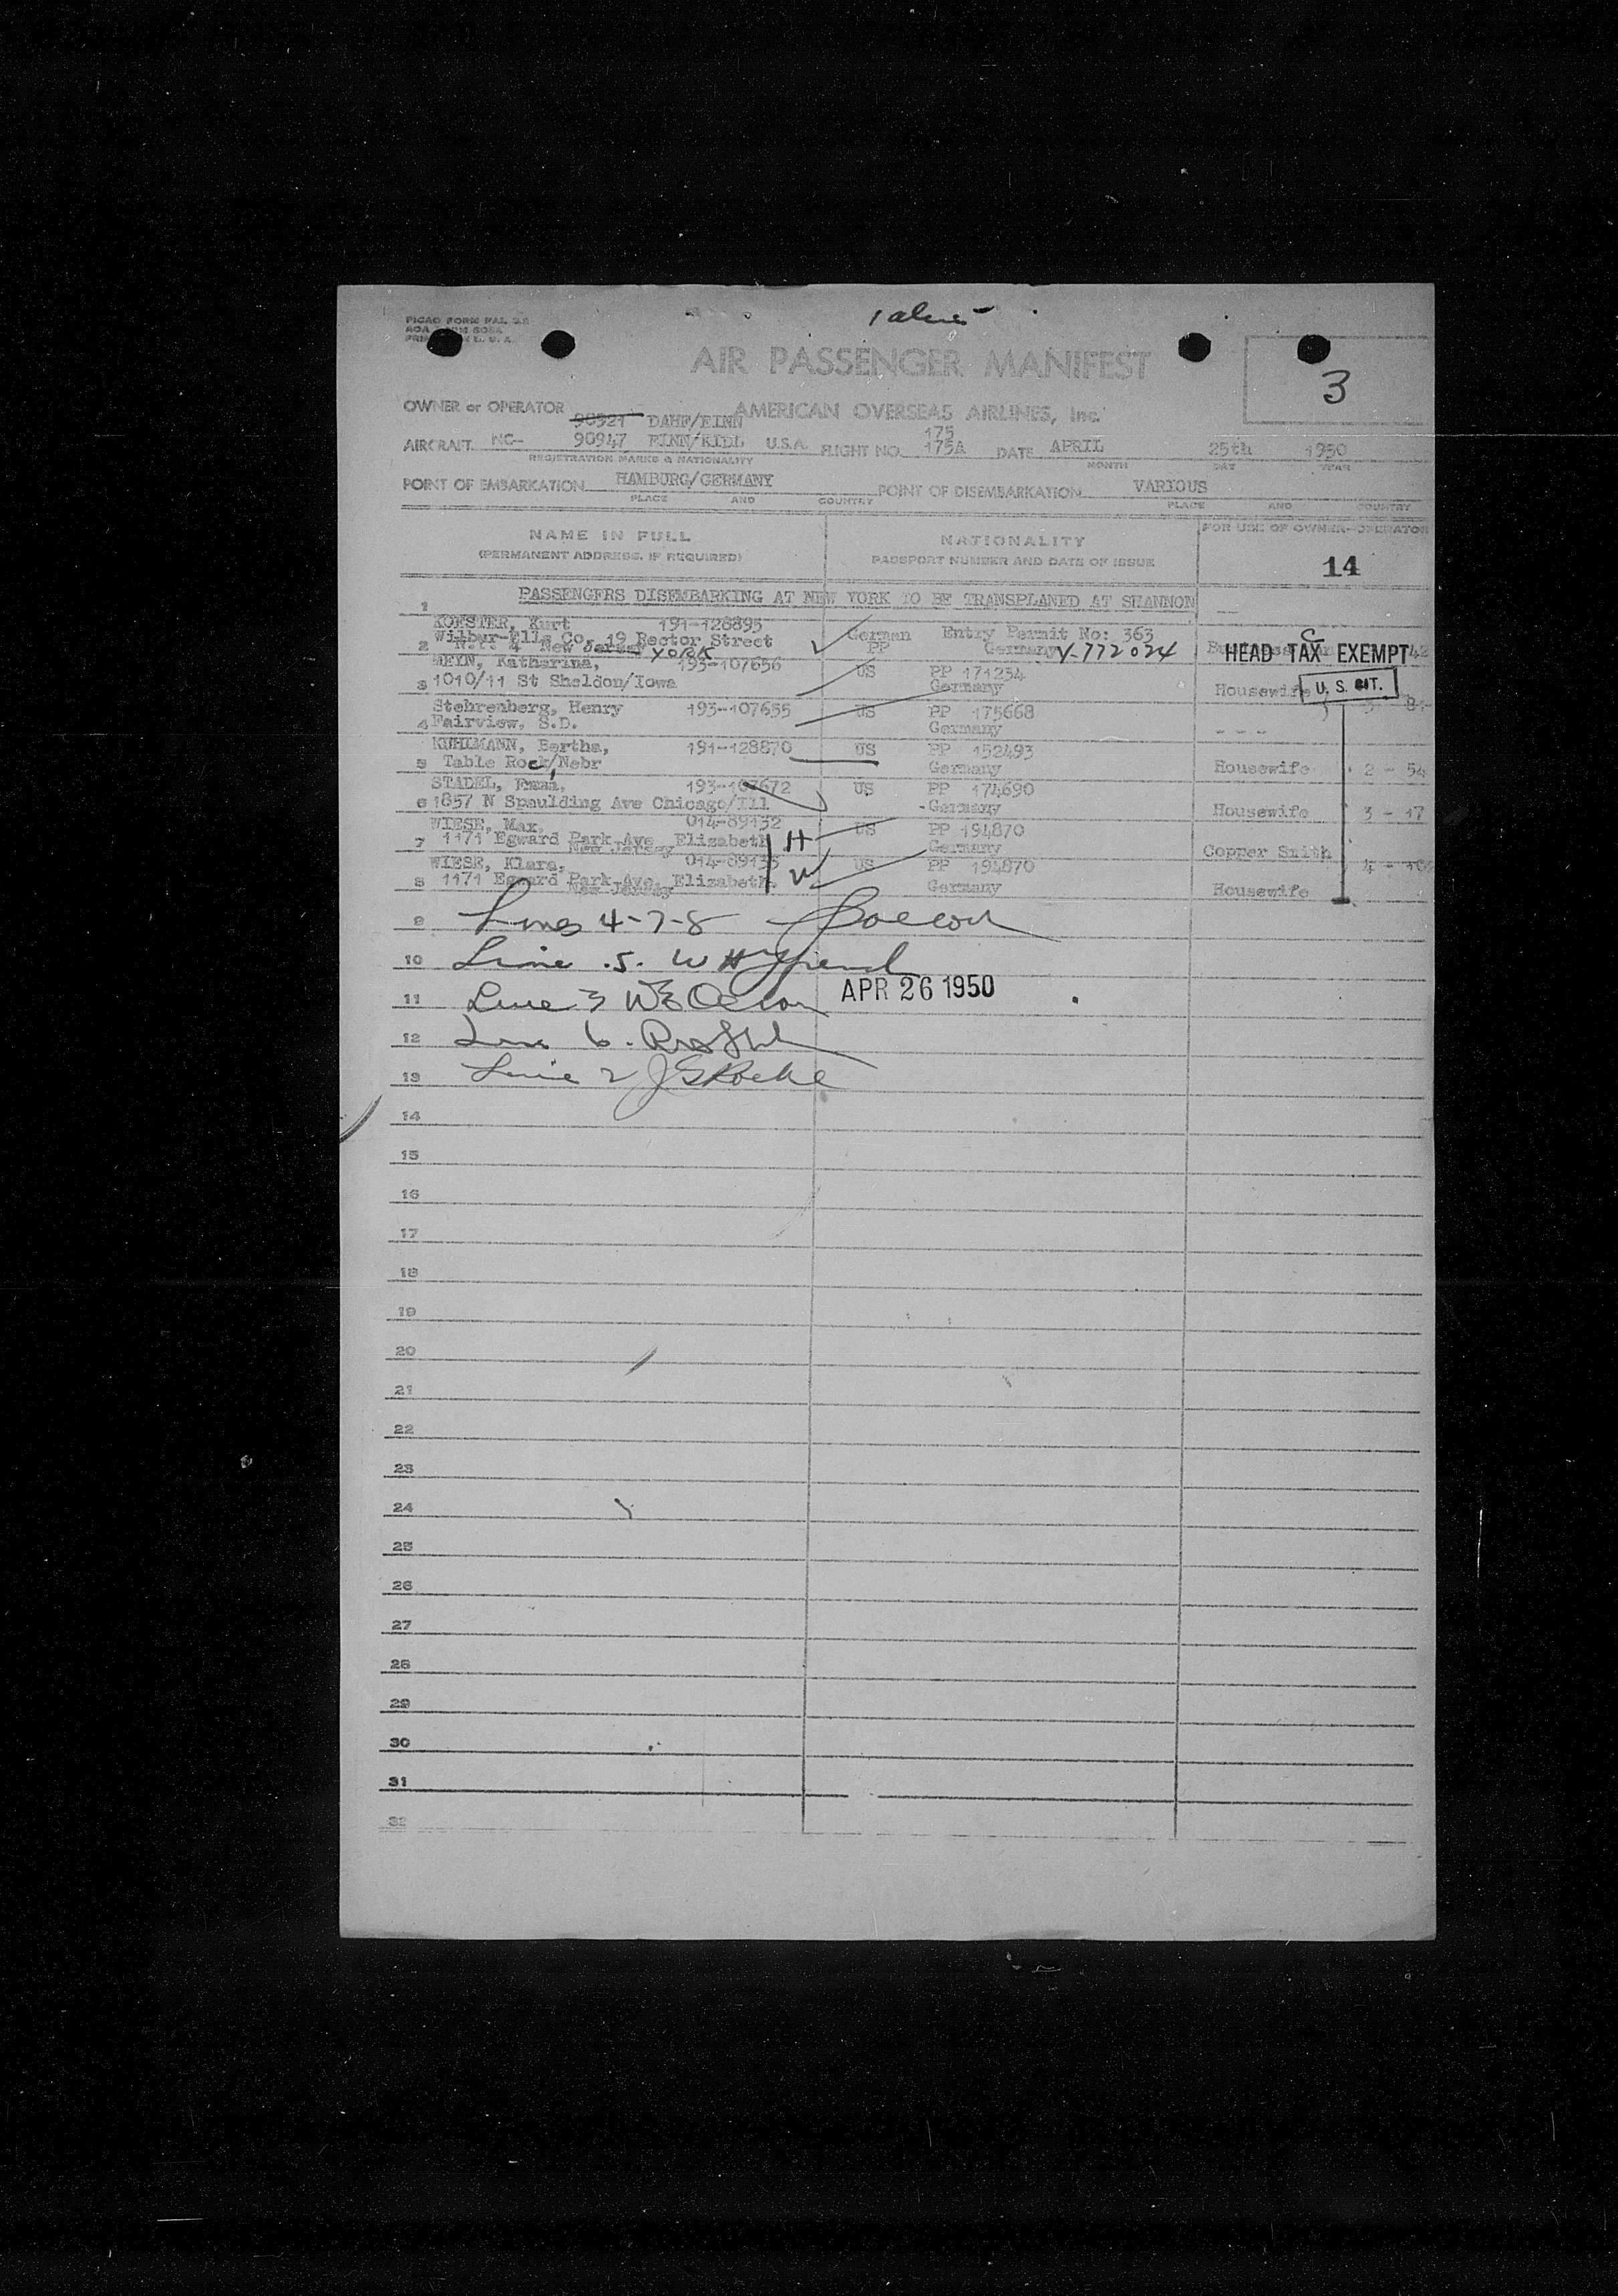 1 alien
PICAO FORM PAL 2.2
AIR PASSENGER MANIFEST
3
OWNER or OPERATOR AMERICAN OVERSEAS AIRLINES, Inc.
90921 DAHF/EINN
AIRCRAFT NC- 90947 EINN/KIDL U.S.A. FLIGHT NO. 175 175A DATE APRIL 25th 1950
REGISTRATION MARKS & NATIONALITY MONTH DAY YEAR
POINT OF EMBARKATION HAMBURG/GERMANY POINT OF DISEMBARKATION VARIOUS
PLACE AND COUNTRY PLACE AND COUNTRY
NAME IN FULL NATIONALITY FOR USE OF OWNER-OPERATOR
(PERMANENT ADDRESS, IF REQUIRED) PASSPORT NUMBER AND DATE OF ISSUE 14
1 PASSENGERS DISEMBARKING AT NEW YORK TO BE TRANSPLANED AT SHANNON
KOESTER, Kurt 191-128895 German Entry Permit No: 363 C
Wilbur-Ellis Co. 19 Rector Street PP Germany V-772024 HEAD TAX EXEMPT 42
2 N.Y. 4 New Jersey YORK
MEYN, Katharina, 193-107656 US PP 171234
3 1010/11 St Sheldon/Iowa Germany Housewife U. S. CIT.
Stehrenberg, Henry 193-107655 US PP 175668
4 Fairview, S.D. Germany - - -
KUHLMANN, Bertha, 191-128870 US PP 152493
5 Table Rock/Nebr Germany Housewife 2 - 54
STADEL, Emma, 193-107672 US PP 174690
6 1857 N Spaulding Ave Chicago/Ill Germany Housewife 3 - 17
WIESE, Max, 014-89132 US PP 194870
7 1171 Egward Park Ave Elizabeth H Germany Copper Smith
New Jersey
WIESE, Klara, 014-89133 W US PP 194870 4 -
8 1171 Egward Park Ave, Elizabeth. Germany Housewife
New Jersey
9 Lines 4-7-8
10 Line 5. W H
11 Line 3 APR 26 1950
12 Line 6.
13 Line 2 J S Roche
14
15
16
17
18
19
20
21
22
23
24
25
26
27
28
29
30
31
32